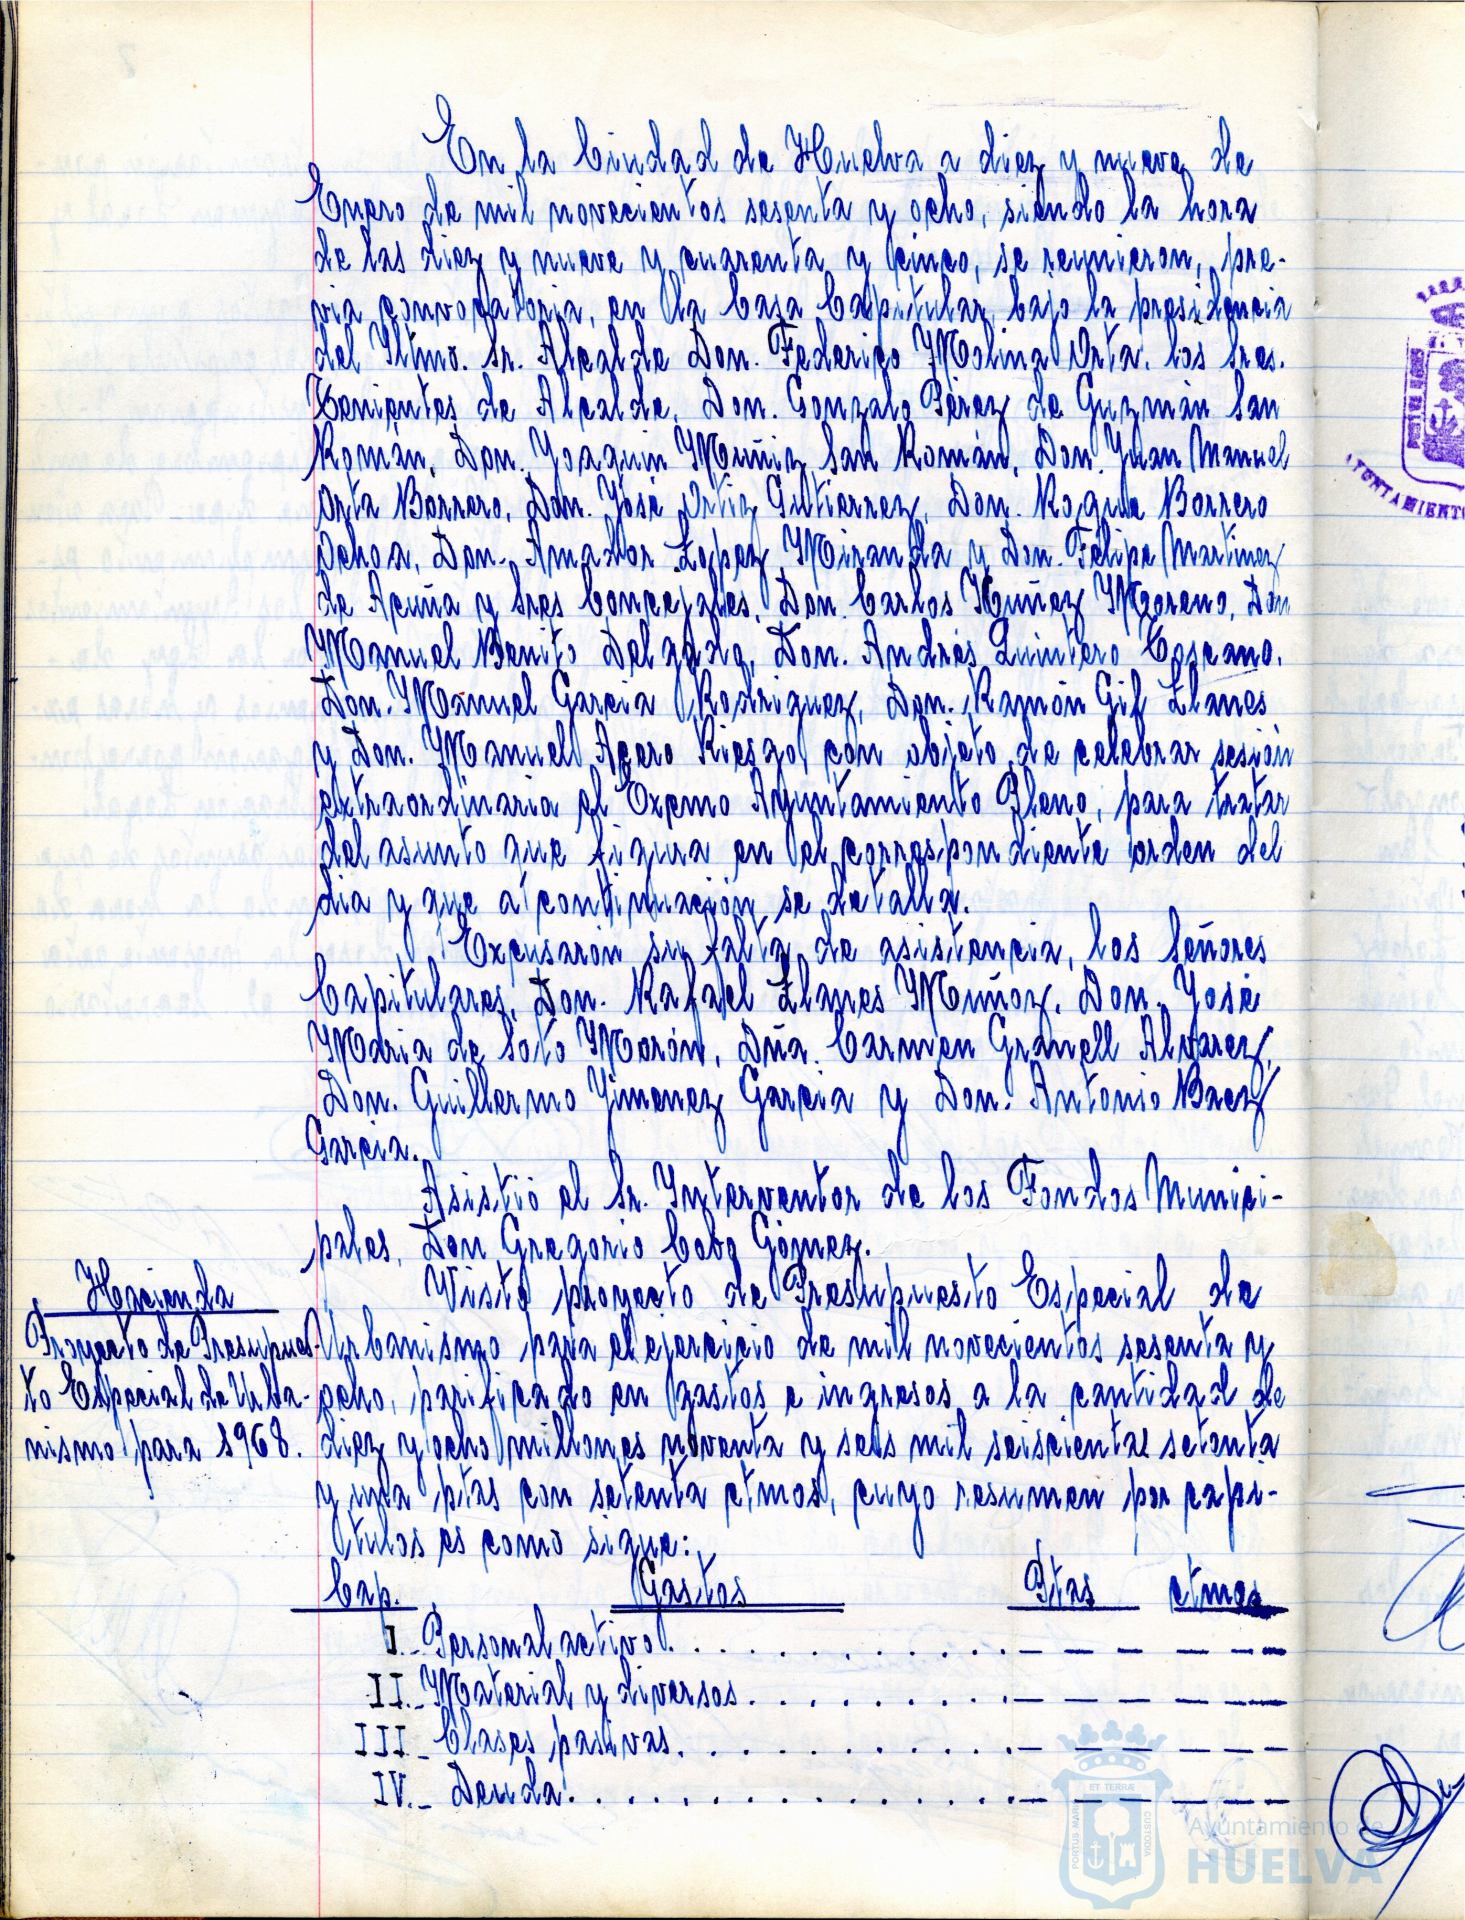 En la Ciudad de Huelva a diez y nueve de
Enero de mil novecientos sesenta y ocho, siendo la hora
de las diez y nueve y cuarenta y cinco, se reunieron, pre-
via convocatoria, en la Casa Capitular, bajo la presidencia
del Iltmo. Sr. Alcalde Don. Federico Molina Orta, los Sres.
Tenientes de Alcalde, Don. Gonzalo Pérez de Guzmán San
Román, Don. Joaquin Muñiz San Román, Don. Juan Manuel
Orta Borrero, Don. José Ortiz Gutierrez, Don. Roque Borrero
Ochoa, Don. Amador Lopez Miranda y Don. Felipe Martinez
de Acuña y Sres Concejales, Don. Carlos Nuñez Moreno, Don
Manuel Benito Delgado, Don. Andrés Quintero Toscano,
Don. Manuel Garcia Rodriguez, Don. Ramón Gil Llanes
y Don. Manuel Acero Riesgo, con objeto de celebrar sesión
extraordinaria el Excmo Ayuntamiento Pleno, para tratar
del asunto que figura en el correspondiente orden del
dia y que a continuación se detalla.
Excusarón su falta de asistencia, los Señores
Capitulares, Don. Rafael Llanes Muñoz, Don. José
Maria de Soto Morón, Dña. Carmen Granell Alvarez,
Don. Guillermo Jimenez Garcia y Don. Antonio Baez
Garcia.
Asistió el Sr. Interventor de los Fondos Munici-
pales, Don Gregorio Cobo Gómez.
Hacienda
Proyecto de Presupues-
to Especial de Urba-
nismo para 1968.
Visto proyecto de Presupuesto Especial de
Urbanismo para el ejercicio de mil novecientos sesenta y
ocho, parificado en gastos e ingresos a la cantidad de
diez y ocho millones noventa y seis mil seiscientas setenta
y una ptas con setenta ctmos, cuyo resumen por capi-
tulos es como sigue:
Cap. Gastos Ptas ctmos
I.- Personal activo. . . . . . . . . . . . - - - - - -
II.- Material y diversos. . . . . . . . . . - - - - - -
III.- Clases pasivas. . . . . . . . . . . . - - - - - -
IV.- Deuda. . . . . . . . . . . . . . . . - - - - - -
ET TERRÆ
PORTUS MARIS
CUSTODIA
Ayuntamiento de
HUELVA